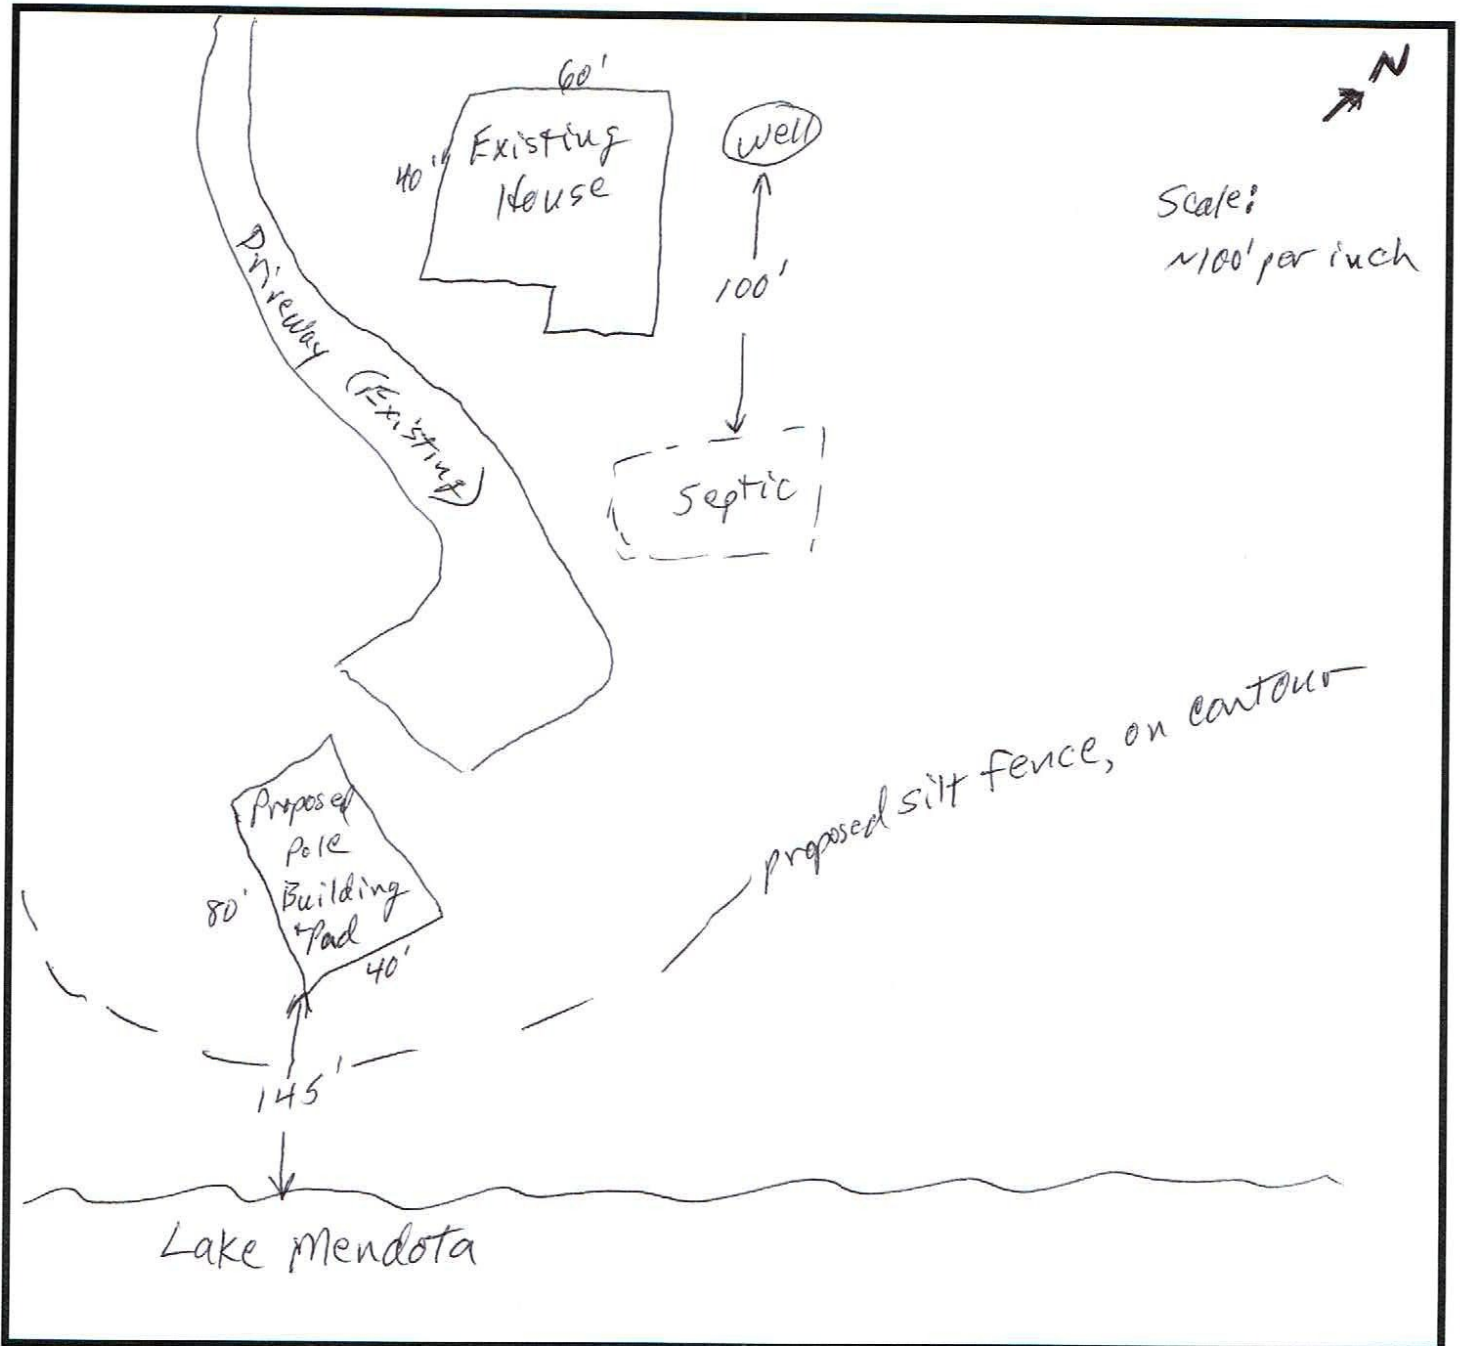 N
60'
Existing
House
40'
well
Scale:
~100' per inch
100'
Driveway (Existing)
Septic
proposed silt fence, on contour
Proposed
Pole
Building
Pad
80'
40'
145'
Lake Mendota